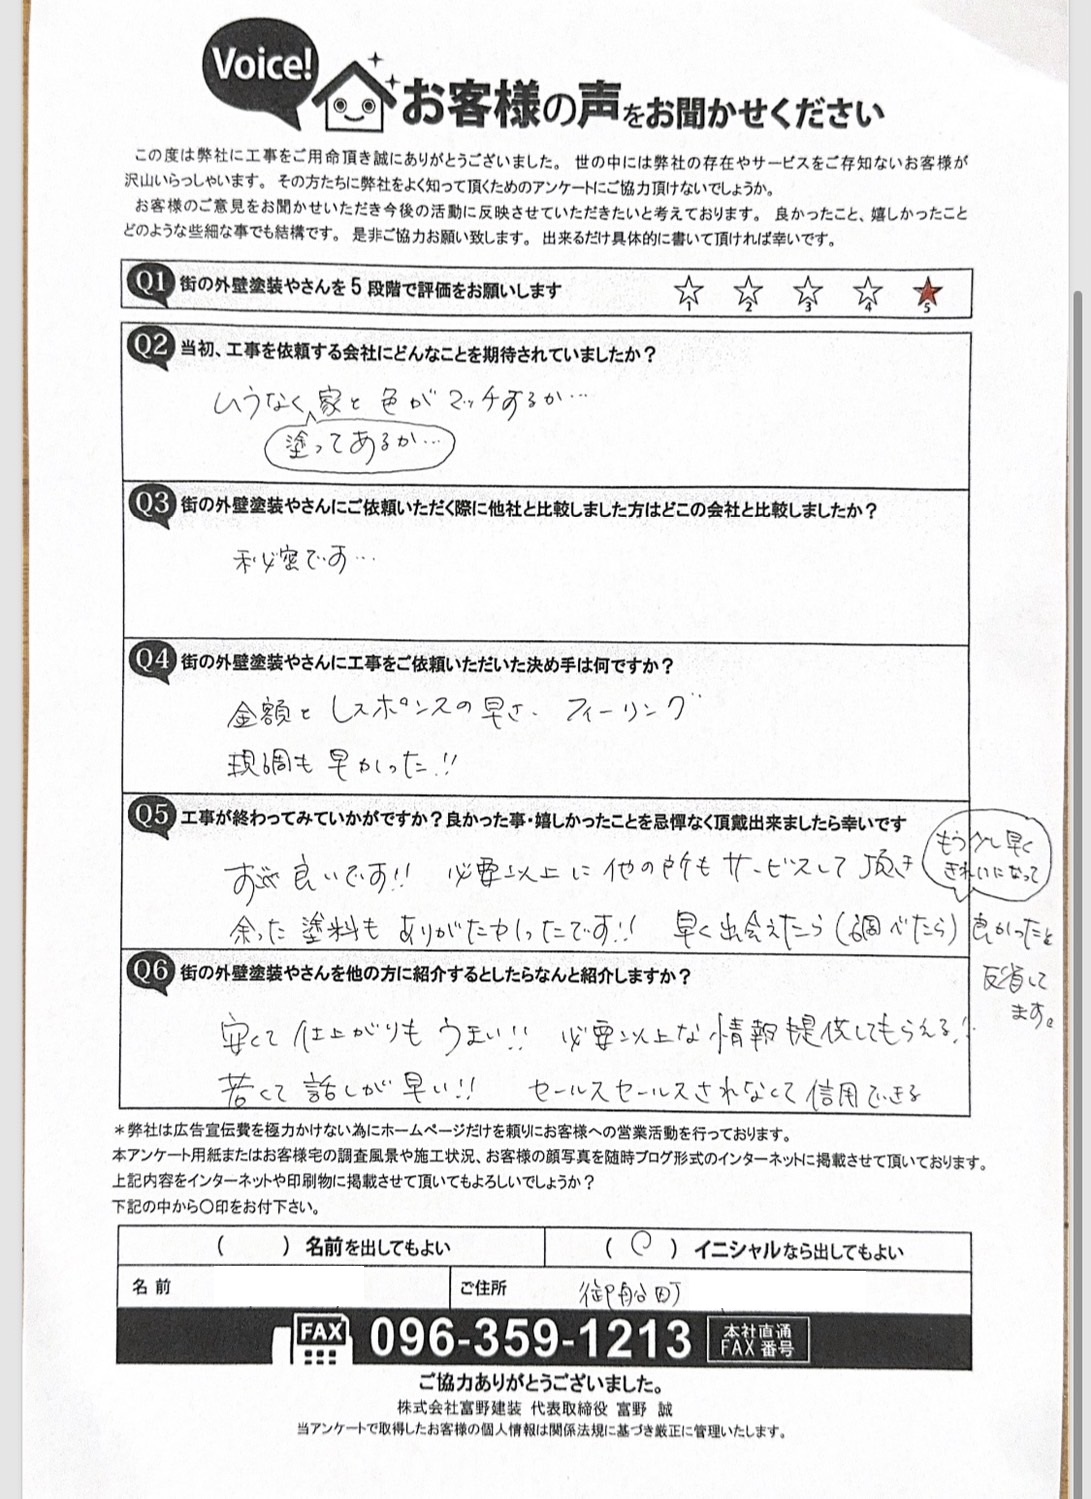 Voice!
お客様の声をお聞かせください
この度は弊社に工事をご用命頂き誠にありがとうございました。 世の中には弊社の存在やサービスをご存知ないお客様が
沢山いらっしゃいます。 その方たちに弊社をよく知って頂くためのアンケートにご協力頂けないでしょうか。
お客様のご意見をお聞かせいただき今後の活動に反映させていただきたいと考えております。 良かったこと、嬉しかったこと
どのような些細な事でも結構です。 是非ご協力お願い致します。 出来るだけ具体的に書いて頂ければ幸いです。
Q1 街の外壁塗装やさんを5段階で評価をお願いします
1 2 3 4 5
Q2 当初、工事を依頼する会社にどんなことを期待されていましたか?
家と色がマッチするか…
塗ってあるか…
Q3 街の外壁塗装やさんにご依頼いただく際に他社と比較しました方はどこの会社と比較しましたか?
秘密です…
Q4 街の外壁塗装やさんに工事をご依頼いただいた決め手は何ですか?
金額とレスポンスの早さ、フィーリング
現調も早かった!!
Q5 工事が終わってみていかがですか?良かった事・嬉しかったことを忌憚なく頂戴出来ましたら幸いです
もう少し早く
きれいになって
良いです!! 必要以上に他の所もサービスして頂き
余った塗料もありがたかったです!! 早く出会えたら(調べたら)良かったと
反省して
ます。
Q6 街の外壁塗装やさんを他の方に紹介するとしたらなんと紹介しますか?
安くて仕上がりもうまい!! 必要以上な情報提供してもらえる!!
若くて話しが早い!! セールスセールスされなくて信用できる
*弊社は広告宣伝費を極力かけない為にホームページだけを頼りにお客様への営業活動を行っております。
本アンケート用紙またはお客様宅の調査風景や施工状況、お客様の顔写真を随時ブログ形式のインターネットに掲載させて頂いております。
上記内容をインターネットや印刷物に掲載させて頂いてもよろしいでしょうか?
下記の中から〇印をお付下さい。
( ) 名前を出してもよい
( ○ ) イニシャルなら出してもよい
名 前
ご住所 御船町
FAX 096-359-1213 本社直通
FAX番号
ご協力ありがとうございました。
株式会社富野建装 代表取締役 富野 誠
当アンケートで取得したお客様の個人情報は関係法規に基づき厳正に管理いたします。